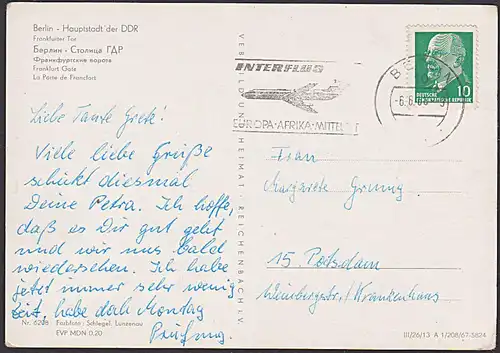 Berlin - Hauptstadt der DDR
Frankfurter Tor
Берлин - Столица ГДР
Франкфуртские ворота
Frankfurt Gate
La Porte de Francfort
Liebe Tante Grete!
Viele liebe Grüße
schickt diesmal
Deine Petra. Ich hoffe,
daß es Dir gut geht
und wir uns bald
wiedersehen. Ich habe
jetzt immer sehr wenig
Zeit, habe doch Montag
Prüfung.
Nr. 6208 Farbfoto: Schlegel, Lunzenau
EVP MDN 0,20
VEB BILD UND HEIMAT REICHENBACH I. V.
INTERFLUG
EUROPA · AFRIKA · MITTEL
BE
-6.6.
DEUTSCHE
DEMOKRATISCHE REPUBLIK
10
Frau
Margarete
15 Potsdam
Weinbergstr./Krankenhaus
III/26/13 A 1/208/67 3824